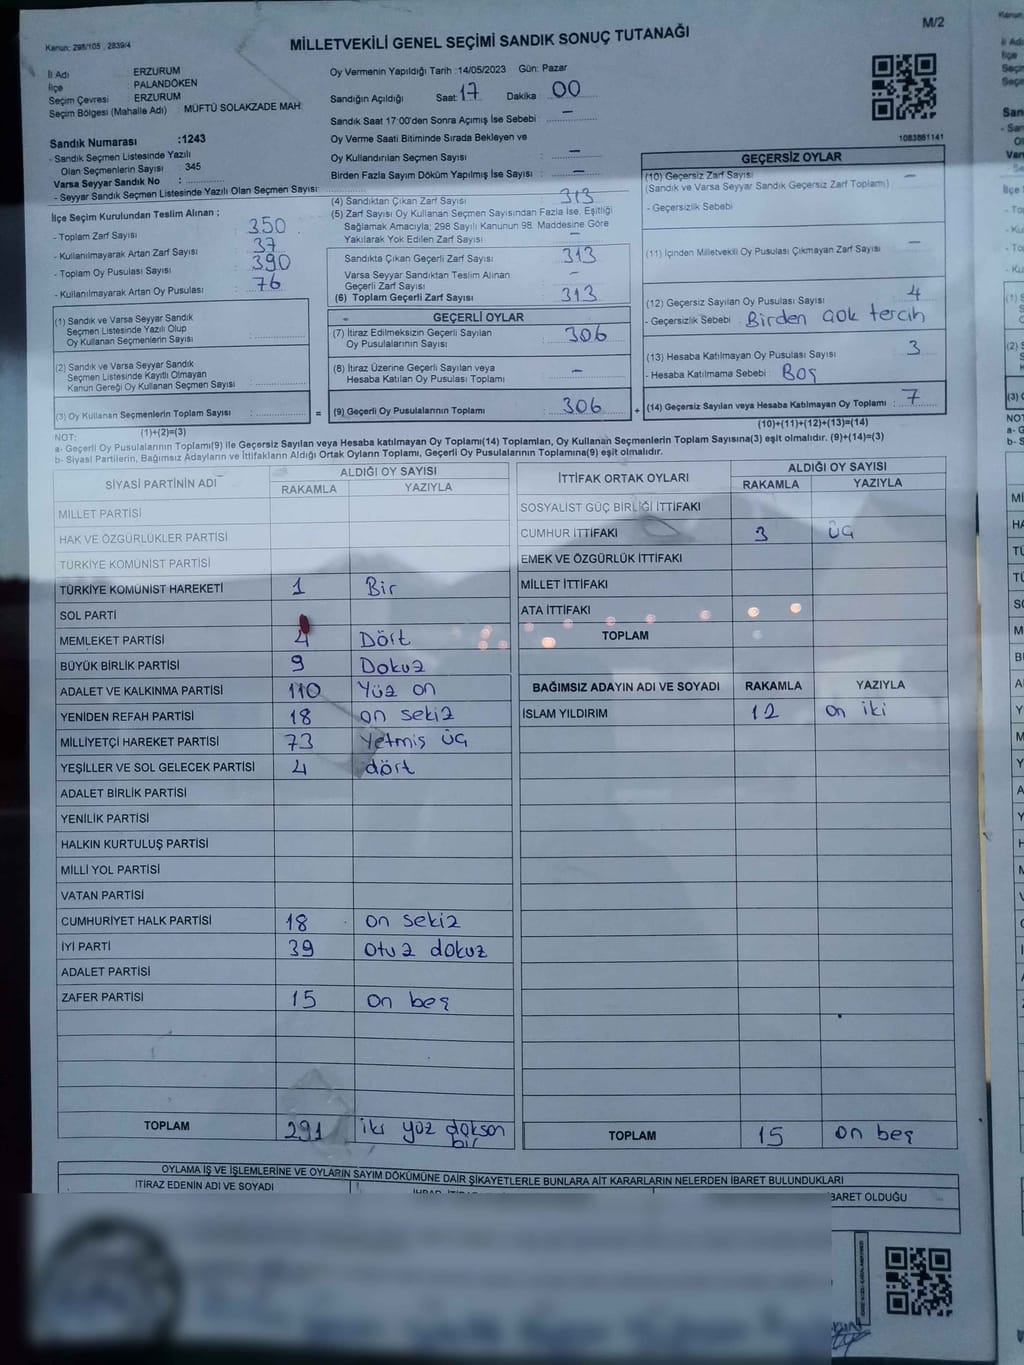 M/2
Kanun: 298/105 , 2839/4
MİLLETVEKİLİ GENEL SEÇİMİ SANDIK SONUÇ TUTANAĞI
İl Adı ERZURUM
İlçe PALANDÖKEN
Seçim Çevresi : ERZURUM
Seçim Bölgesi (Mahalle Adı) : MÜFTÜ SOLAKZADE MAH.
Sandık Numarası :1243
- Sandık Seçmen Listesinde Yazılı
Olan Seçmenlerin Sayısı : 345
Varsa Seyyar Sandık No : ............
- Seyyar Sandık Seçmen Listesinde Yazılı Olan Seçmen Sayısı: ............
Oy Vermenin Yapıldığı Tarih :14/05/2023 Gün: Pazar
Sandığın Açıldığı Saat: 17 Dakika 00
Sandık Saat 17:00'den Sonra Açımış İse Sebebi : —
Oy Verme Saati Bitiminde Sırada Bekleyen ve
Oy Kullandırılan Seçmen Sayısı : —
Birden Fazla Sayım Döküm Yapılmış İse Sayısı : —
1083861141
İlçe Seçim Kurulundan Teslim Alınan ;
- Toplam Zarf Sayısı : 350
- Kullanılmayarak Artan Zarf Sayısı : 37
- Toplam Oy Pusulası Sayısı : 390
- Kullanılmayarak Artan Oy Pusulası : 76
(1) Sandık ve Varsa Seyyar Sandık
Seçmen Listesinde Yazılı Olup
Oy Kullanan Seçmenlerin Sayısı : ............
(2) Sandık ve Varsa Seyyar Sandık
Seçmen Listesinde Kayıtlı Olmayan
Kanun Gereği Oy Kullanan Seçmen Sayısı : ............
(3) Oy Kullanan Seçmenlerin Toplam Sayısı : ............
(1)+(2)=(3)
(4) Sandıktan Çıkan Zarf Sayısı : 313
(5) Zarf Sayısı Oy Kullanan Seçmen Sayısından Fazla İse, Eşitliği
Sağlamak Amacıyla; 298 Sayılı Kanunun 98. Maddesine Göre
Yakılarak Yok Edilen Zarf Sayısı : —
Sandıkta Çıkan Geçerli Zarf Sayısı : 313
Varsa Seyyar Sandıktan Teslim Alınan
Geçerli Zarf Sayısı : —
(6) Toplam Geçerli Zarf Sayısı : 313
GEÇERLİ OYLAR
(7) İtiraz Edilmeksizin Geçerli Sayılan
Oy Pusulalarının Sayısı : 306
(8) İtiraz Üzerine Geçerli Sayılan veya
Hesaba Katılan Oy Pusulası Toplamı : —
= (9) Geçerli Oy Pusulalarının Toplamı : 306 +
GEÇERSİZ OYLAR
(10) Geçersiz Zarf Sayısı : —
(Sandık ve Varsa Seyyar Sandık Geçersiz Zarf Toplamı)
- Geçersizlik Sebebi
(11) İçinden Milletvekili Oy Pusulası Çıkmayan Zarf Sayısı : —
(12) Geçersiz Sayılan Oy Pusulası Sayısı : 4
- Geçersizlik Sebebi : Birden çok tercih
(13) Hesaba Katılmayan Oy Pusulası Sayısı : 3
- Hesaba Katılmama Sebebi : Boş
(14) Geçersiz Sayılan veya Hesaba Katılmayan Oy Toplamı : 7
(10)+(11)+(12)+(13)=(14)
NOT:
a- Geçerli Oy Pusulalarının Toplamı(9) ile Geçersiz Sayılan veya Hesaba katılmayan Oy Toplamı(14) Toplamları, Oy Kullanan Seçmenlerin Toplam Sayısına(3) eşit olmalıdır. (9)+(14)=(3)
b- Siyasi Partilerin, Bağımsız Adayların ve İttifakların Aldığı Ortak Oyların Toplamı, Geçerli Oy Pusulalarının Toplamına(9) eşit olmalıdır.
SİYASİ PARTİNİN ADI ALDIĞI OY SAYISI
RAKAMLA YAZIYLA
MİLLET PARTİSİ
HAK VE ÖZGÜRLÜKLER PARTİSİ
TÜRKİYE KOMÜNİST PARTİSİ
TÜRKİYE KOMÜNİST HAREKETİ 1 Bir
SOL PARTİ
MEMLEKET PARTİSİ 4 Dört
BÜYÜK BİRLİK PARTİSİ 9 Dokuz
ADALET VE KALKINMA PARTİSİ 110 Yüz on
YENİDEN REFAH PARTİSİ 18 on sekiz
MİLLİYETÇİ HAREKET PARTİSİ 73 Yetmiş üç
YEŞİLLER VE SOL GELECEK PARTİSİ 4 dört
ADALET BİRLİK PARTİSİ
YENİLİK PARTİSİ
HALKIN KURTULUŞ PARTİSİ
MİLLİ YOL PARTİSİ
VATAN PARTİSİ
CUMHURİYET HALK PARTİSİ 18 on sekiz
İYİ PARTİ 39 otuz dokuz
ADALET PARTİSİ
ZAFER PARTİSİ 15 on beş
TOPLAM 291 iki yüz doksan
bir
İTTİFAK ORTAK OYLARI ALDIĞI OY SAYISI
RAKAMLA YAZIYLA
SOSYALİST GÜÇ BİRLİĞİ İTTİFAKI
CUMHUR İTTİFAKI 3 üç
EMEK VE ÖZGÜRLÜK İTTİFAKI
MİLLET İTTİFAKI
ATA İTTİFAKI
TOPLAM
BAĞIMSIZ ADAYIN ADI VE SOYADI RAKAMLA YAZIYLA
İSLAM YILDIRIM 12 on iki
TOPLAM 15 on beş
OYLAMA İŞ VE İŞLEMLERİNE VE OYLARIN SAYIM DÖKÜMÜNE DAİR ŞİKAYETLERLE BUNLARA AİT KARARLARIN NELERDEN İBARET BULUNDUKLARI
İTİRAZ EDENİN ADI VE SOYADI
İBARET OLDUĞU